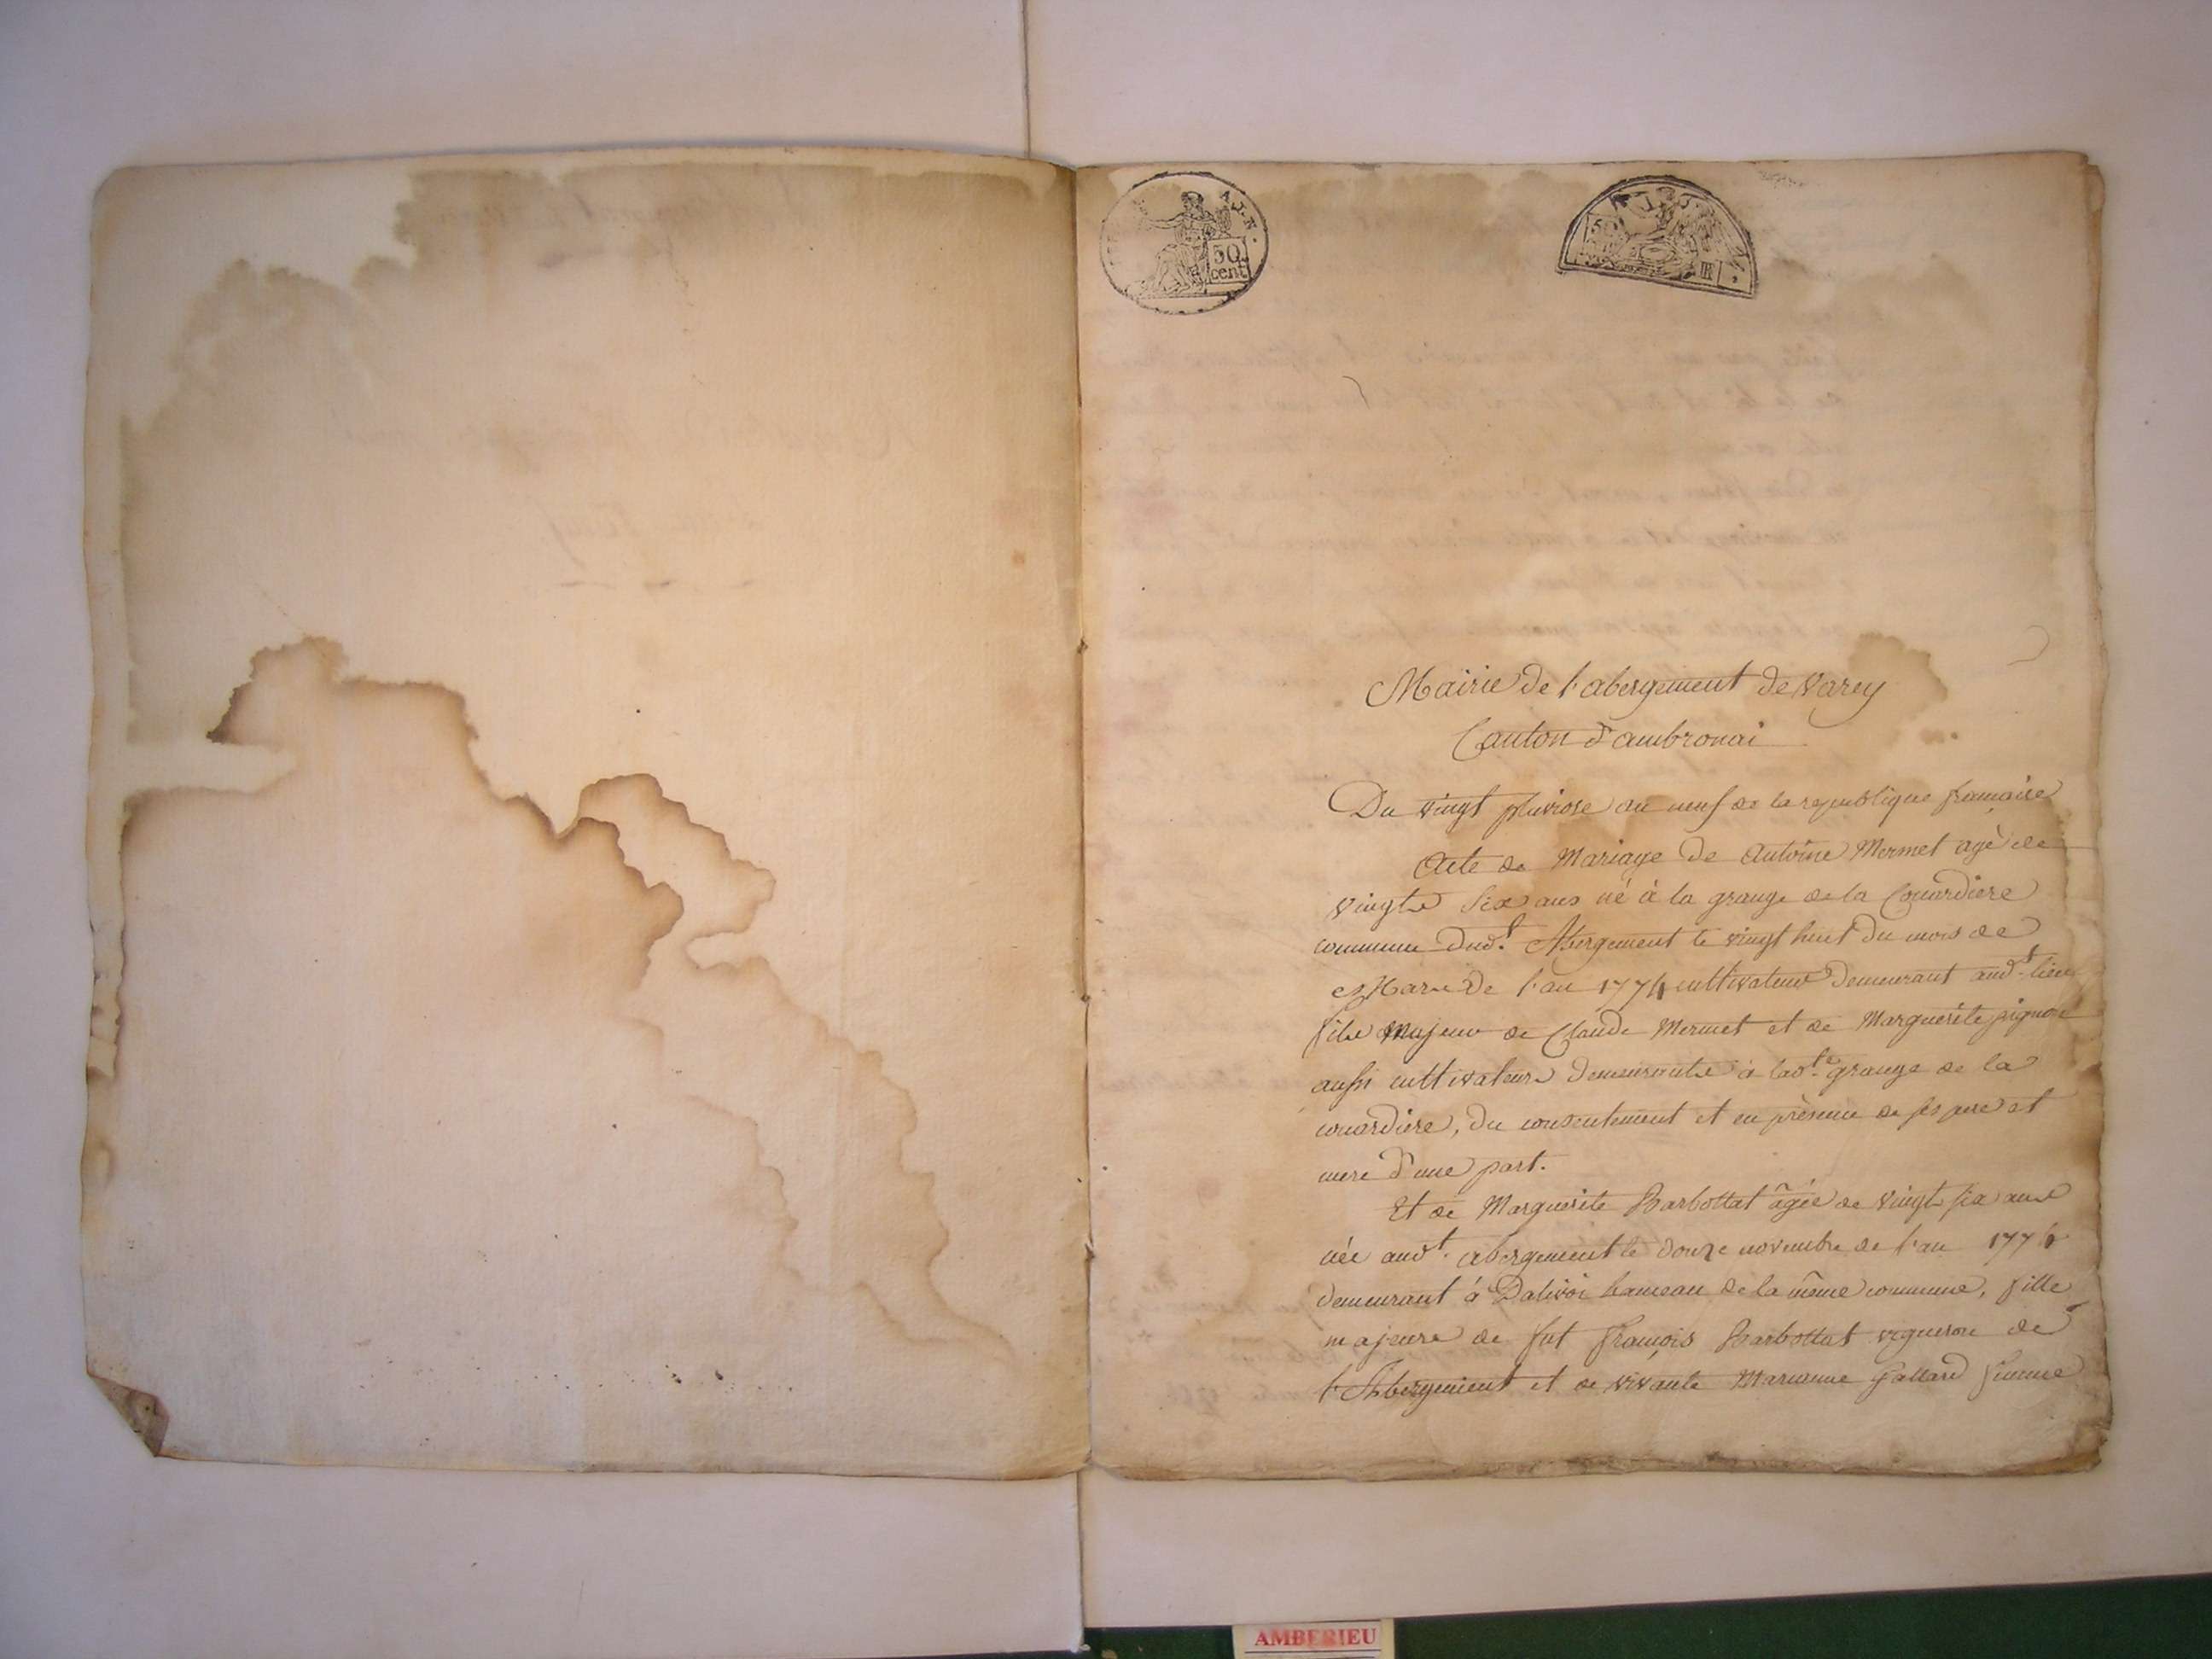 AIN.
50
cent
50
Mairie de l'abergement de Varey
Canton d'ambronai
Du vingt pluviose an neuf de la republique francaise
Acte de Mariage de Antoine Mermet agé de
vingt Six ans né à la grange de la Couardiere
commune dud.t Abergement le vingt huit du mois de
Mars De l'an 1774 cultivateur Demeurant aud.t lieu
fils Majeur de Claude Mermet et de Marguerite pignol
aussi cultivateurs Demeurants à lad.te grange de la
couardiere, du consentement et en présence de ses pere et
mere d'une part.
Et de Marguerite Barbottat âgée de vingt six ans
née aud.t abergement le douze novembre de l'an 1774
demeurant à Dalivoi hameau de la même commune, fille
majeure de fut François Barbottat vigneron de
l'Abergement et de vivante Marianne Gallard femme
AMBERIEU